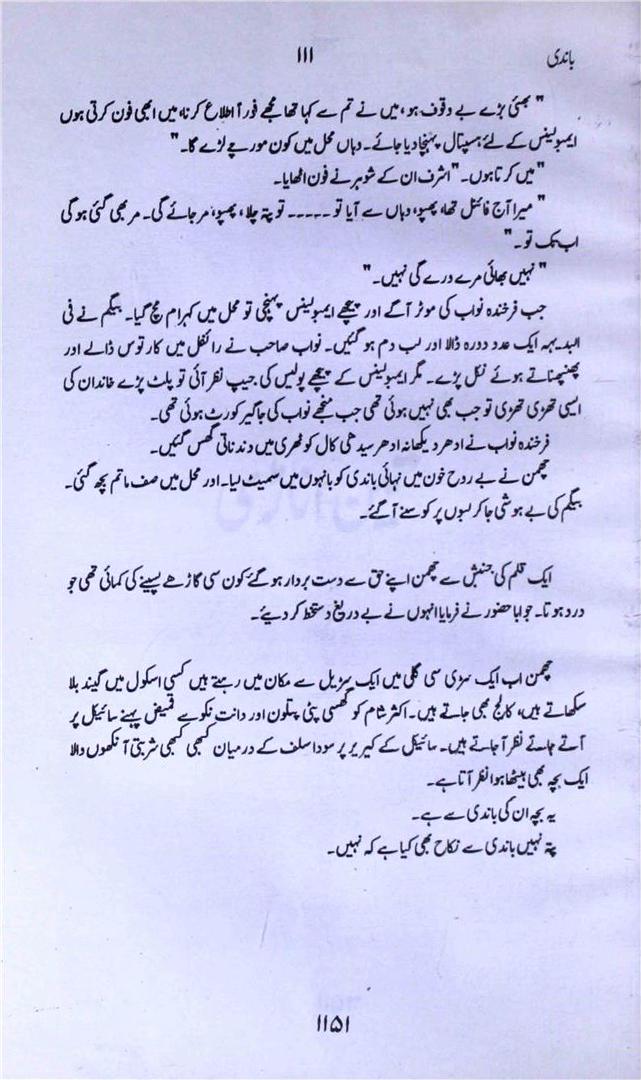 باندی
۱۱۱
" بھئی بڑے بے وقوف ہو، میں نے تم سے کہا تھا مجھے فوراً اطلاع کرنا، میں ابھی فون کرتی ہوں
ایمبولینس کے لئے ہسپتال پہنچا دیا جائے۔ وہاں محل میں کون مورچے لڑے گا۔ "
" میں کرتا ہوں۔ " اشرف ان کے شوہر نے فون اٹھایا۔
" میرا آج فائنل تھا، پھپو، وہاں سے آیا تو ۔۔۔۔۔ تو پتہ چلا، پھپو، مر جائے گی۔ مر بھی گئی ہوگی
اب تک تو۔ "
" نہیں بھائی مرے ورے گی نہیں۔ "
جب فرخندہ نواب کی موٹر آگے اور پیچھے ایمبولینس پہنچی تو محل میں کہرام مچ گیا۔ بیگم نے فی
البدیہہ ایک عدد دورہ ڈالا اور لب دم ہو گئیں۔ نواب صاحب نے رائفل میں کارتوس ڈالے اور
پھنپھناتے ہوئے نکل پڑے۔ مگر ایمبولینس کے پیچھے پولیس کی جیپ نظر آئی تو پلٹ پڑے خاندان کی
ایسی تھڑی تھڑی تو جب بھی نہیں ہوئی تھی جب منجھے نواب کی جاگیر کورٹ ہوئی تھی۔
فرخندہ نواب نے ادھر دیکھا نہ ادھر سیدھی کال کوٹھری میں دندناتی گھس گئیں۔
چھمن نے بے روح خون میں نہائی باندی کو بانہوں میں سمیٹ لیا۔ اور محل میں صف ماتم بچھ گئی۔
بیگم کی بے ہوشی جا کر لبوں پر کوسنے آگئے۔
ایک قلم کی جنبش سے چھمن اپنے حق سے دست بردار ہو گئے کون سی گاڑھے پسینے کی کمائی تھی جو
درد ہوتا۔ جو ابا حضور نے فرمایا انہوں نے بے دریغ دستخط کر دیئے۔
چھمن اب ایک سڑی سی گلی میں ایک سڑیل سے مکان میں رہتے ہیں کسی اسکول میں گیند بلا
سکھاتے ہیں، کالج بھی جاتے ہیں۔ اکثر شام کو گھسی پٹی پتلون اور دانت نکوسے قمیض پہنے سائیکل پر
آتے جاتے نظر آ جاتے ہیں۔ سائیکل کے کیریر پر سودا سلف کے درمیان کبھی کبھی شربتی آنکھوں والا
ایک بچہ بھی بیٹھا ہوا نظر آتا ہے۔
یہ بچہ ان کی باندی سے ہے۔
پتہ نہیں باندی سے نکاح بھی کیا ہے کہ نہیں۔
۱۱۵۱